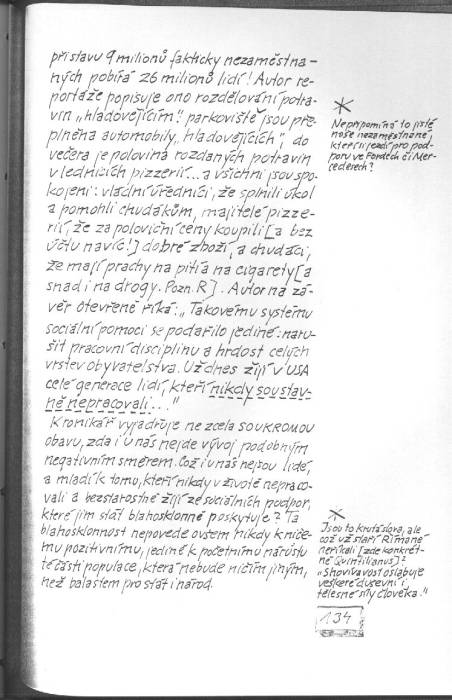 při stavu 9 milionů fakticky nezaměstna-
ných pobírá 26 milionů lidí! Autor re-
portáže popisuje ono rozdělování potra-
vin „hladovějícím": parkoviště jsou pře-
plněna automobily „hladovějících", do
večera je polovina rozdaných potravin
v lednicích pizzerií... a všichni jsou spo-
kojeni: vládní úředníci, že splnili úkol
a pomohli chudákům, majitelé pizze-
rií, že za poloviční ceny koupili [a bez
účtu navíc!] dobré zboží, a chudáci,
že mají prachy na pití a na cigarety [a
snad i na drogy. Pozn. R]. Autor na zá-
věr otevřeně říká: „Takovému systému
sociální pomoci se podařilo jediné: naru-
šit pracovní disciplinu a hrdost celých
vrstev obyvatelstva. Už dnes žijí v USA
celé generace lidí, kteří nikdy soustav-
ně nepracovali..."
Kronikář vyjadřuje ne zcela SOUKROMOU
obavu, zda i u nás nejde vývoj podobným
negativním směrem. Což i u nás nejsou lidé,
a mladí k tomu, kteří nikdy v životě nepraco-
vali a bezstarostně žijí ze sociálních podpor,
které jim stát blahosklonně poskytuje? Ta
blahosklonnost nepovede ovšem nikdy k niče-
mu pozitivnímu, jedině k početnímu nárůstu
té části populace, která nebude ničím jiným,
než balastem pro stát i národ.
Nepřipomíná to jisté
naše nezaměstnané,
kteří si jezdí pro pod-
poru ve Fordech či Mer-
cedesech?
Jsou to krutá slova, ale
což už staří Římané
neříkali [zde konkrét-
ně Quintilianus]:
„Shovívavost oslabuje
veškeré duševní i
tělesné síly člověka."
134